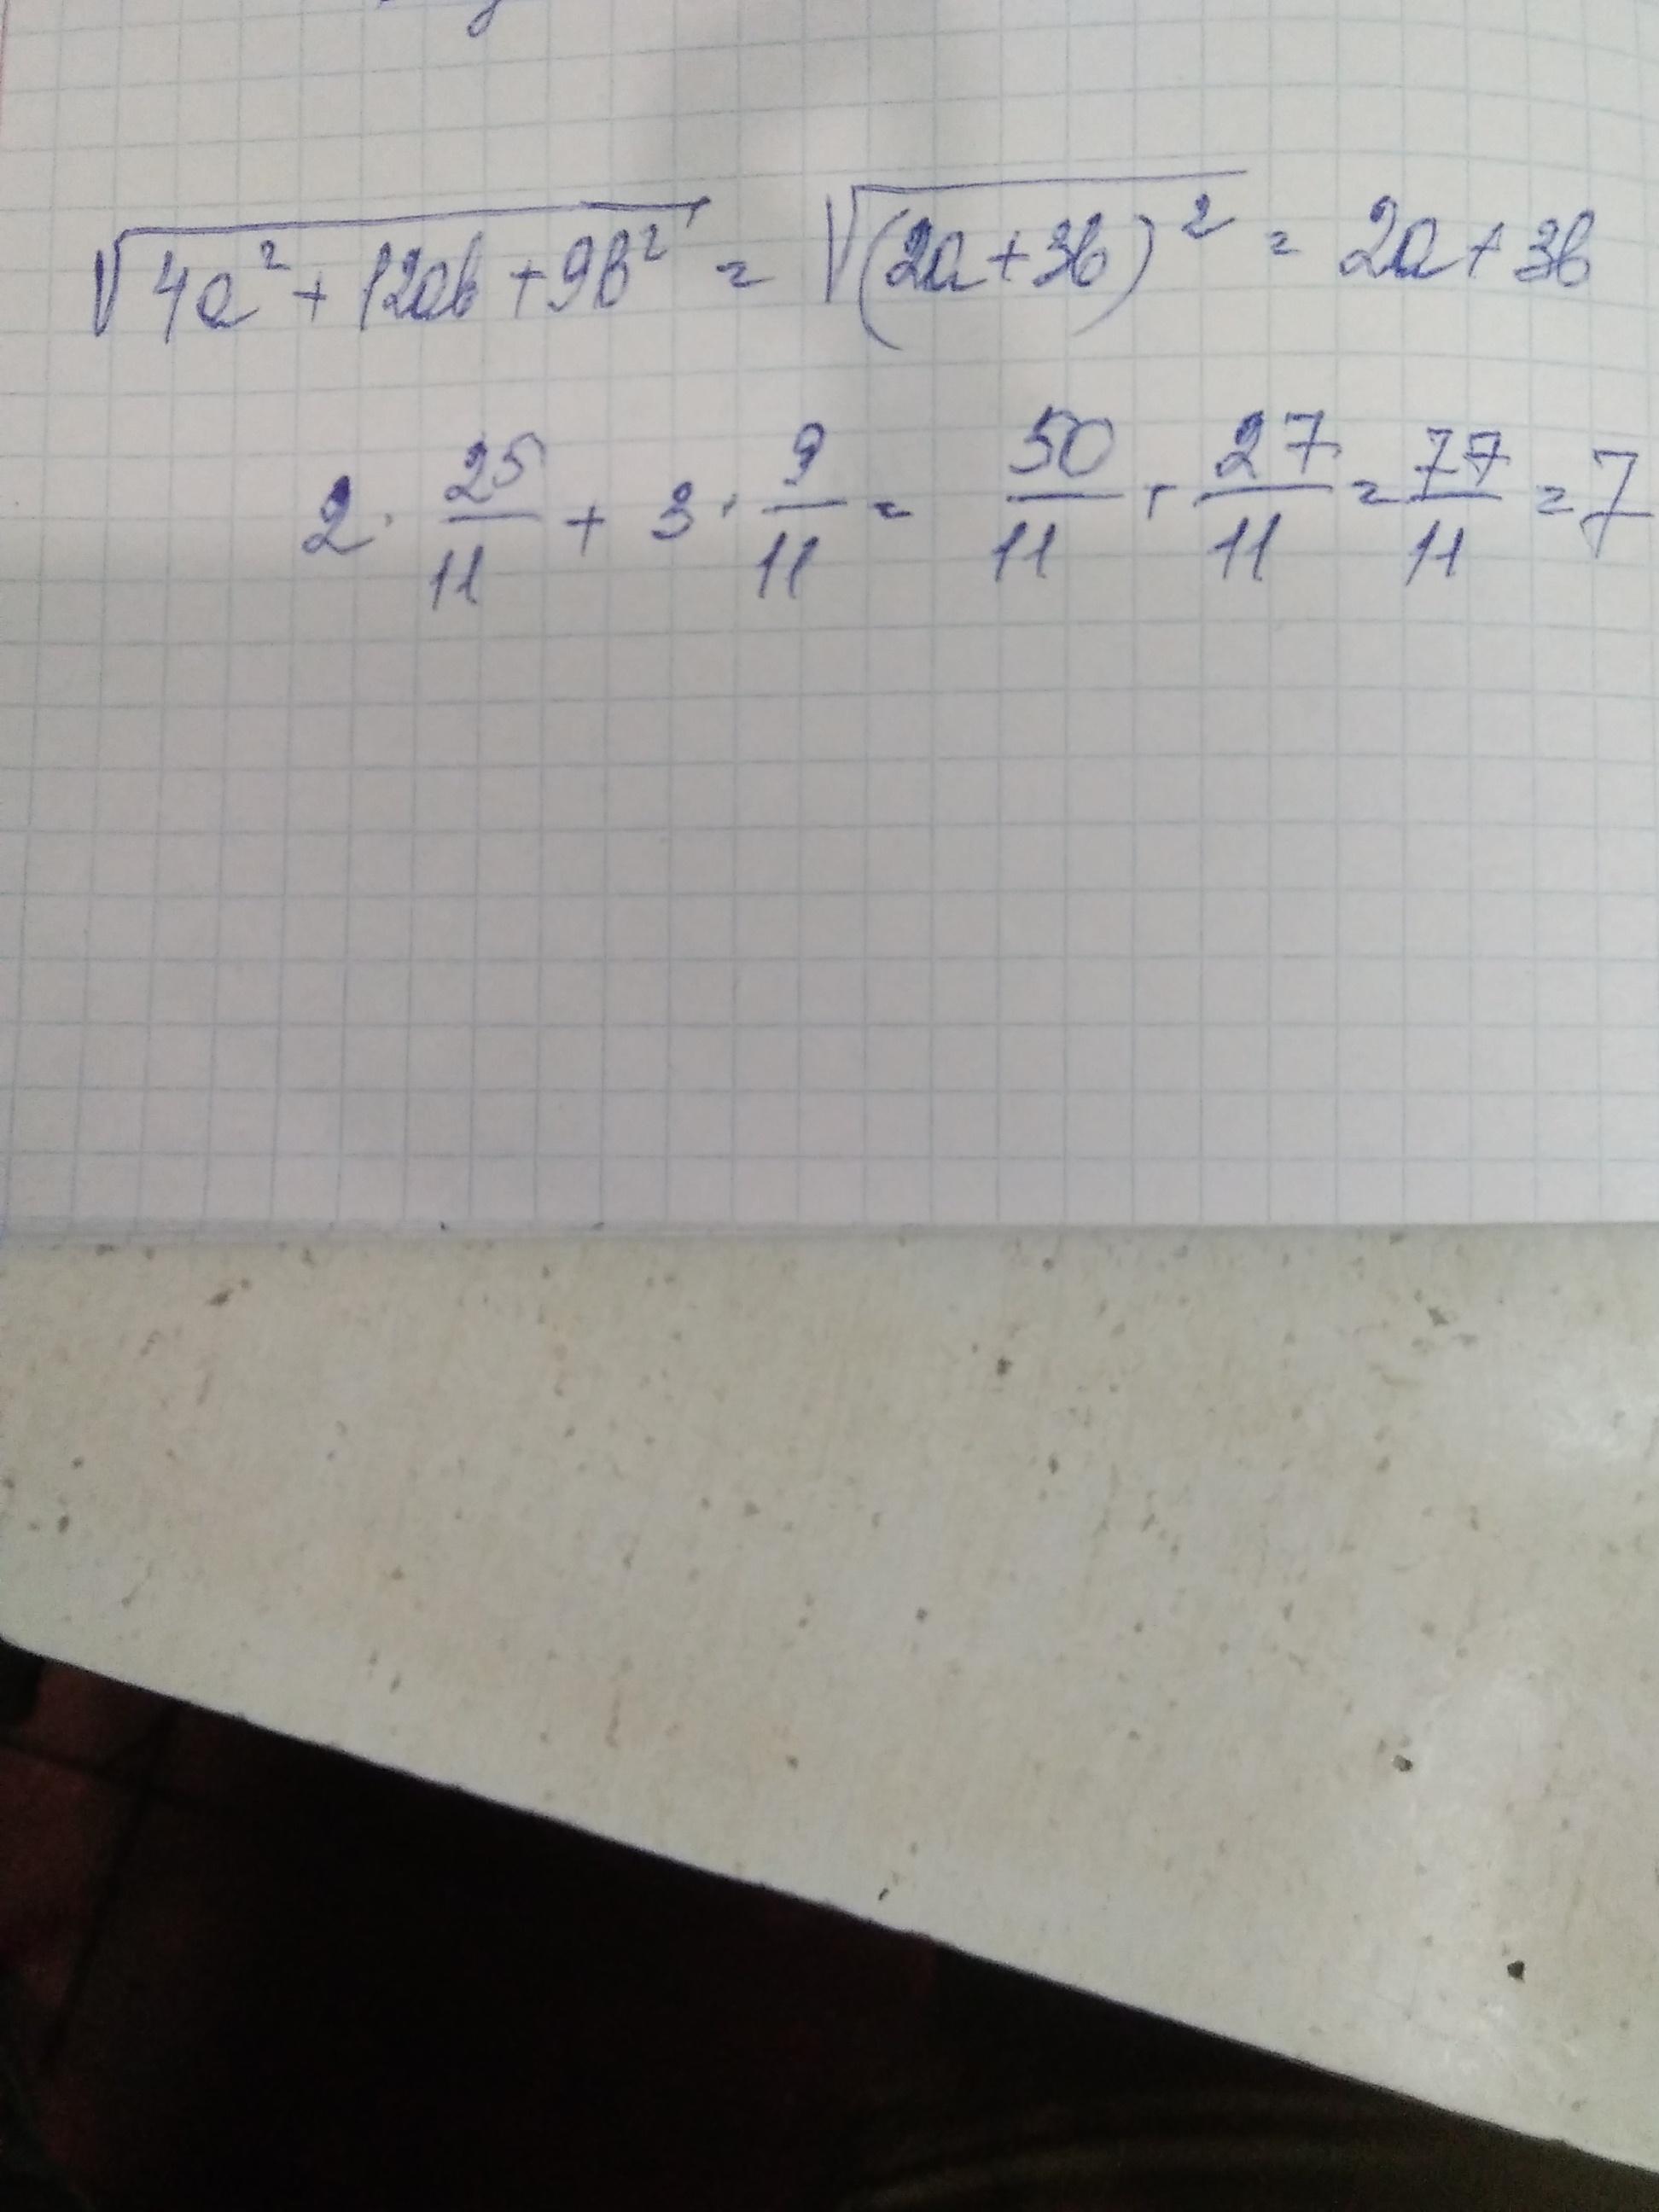 √(4a² + 12ab + 9b²) = √((2a + 3b)²) = 2a + 3b
2 · 25/11 + 3 · 9/11 = 50/11 + 27/11 = 77/11 = 7